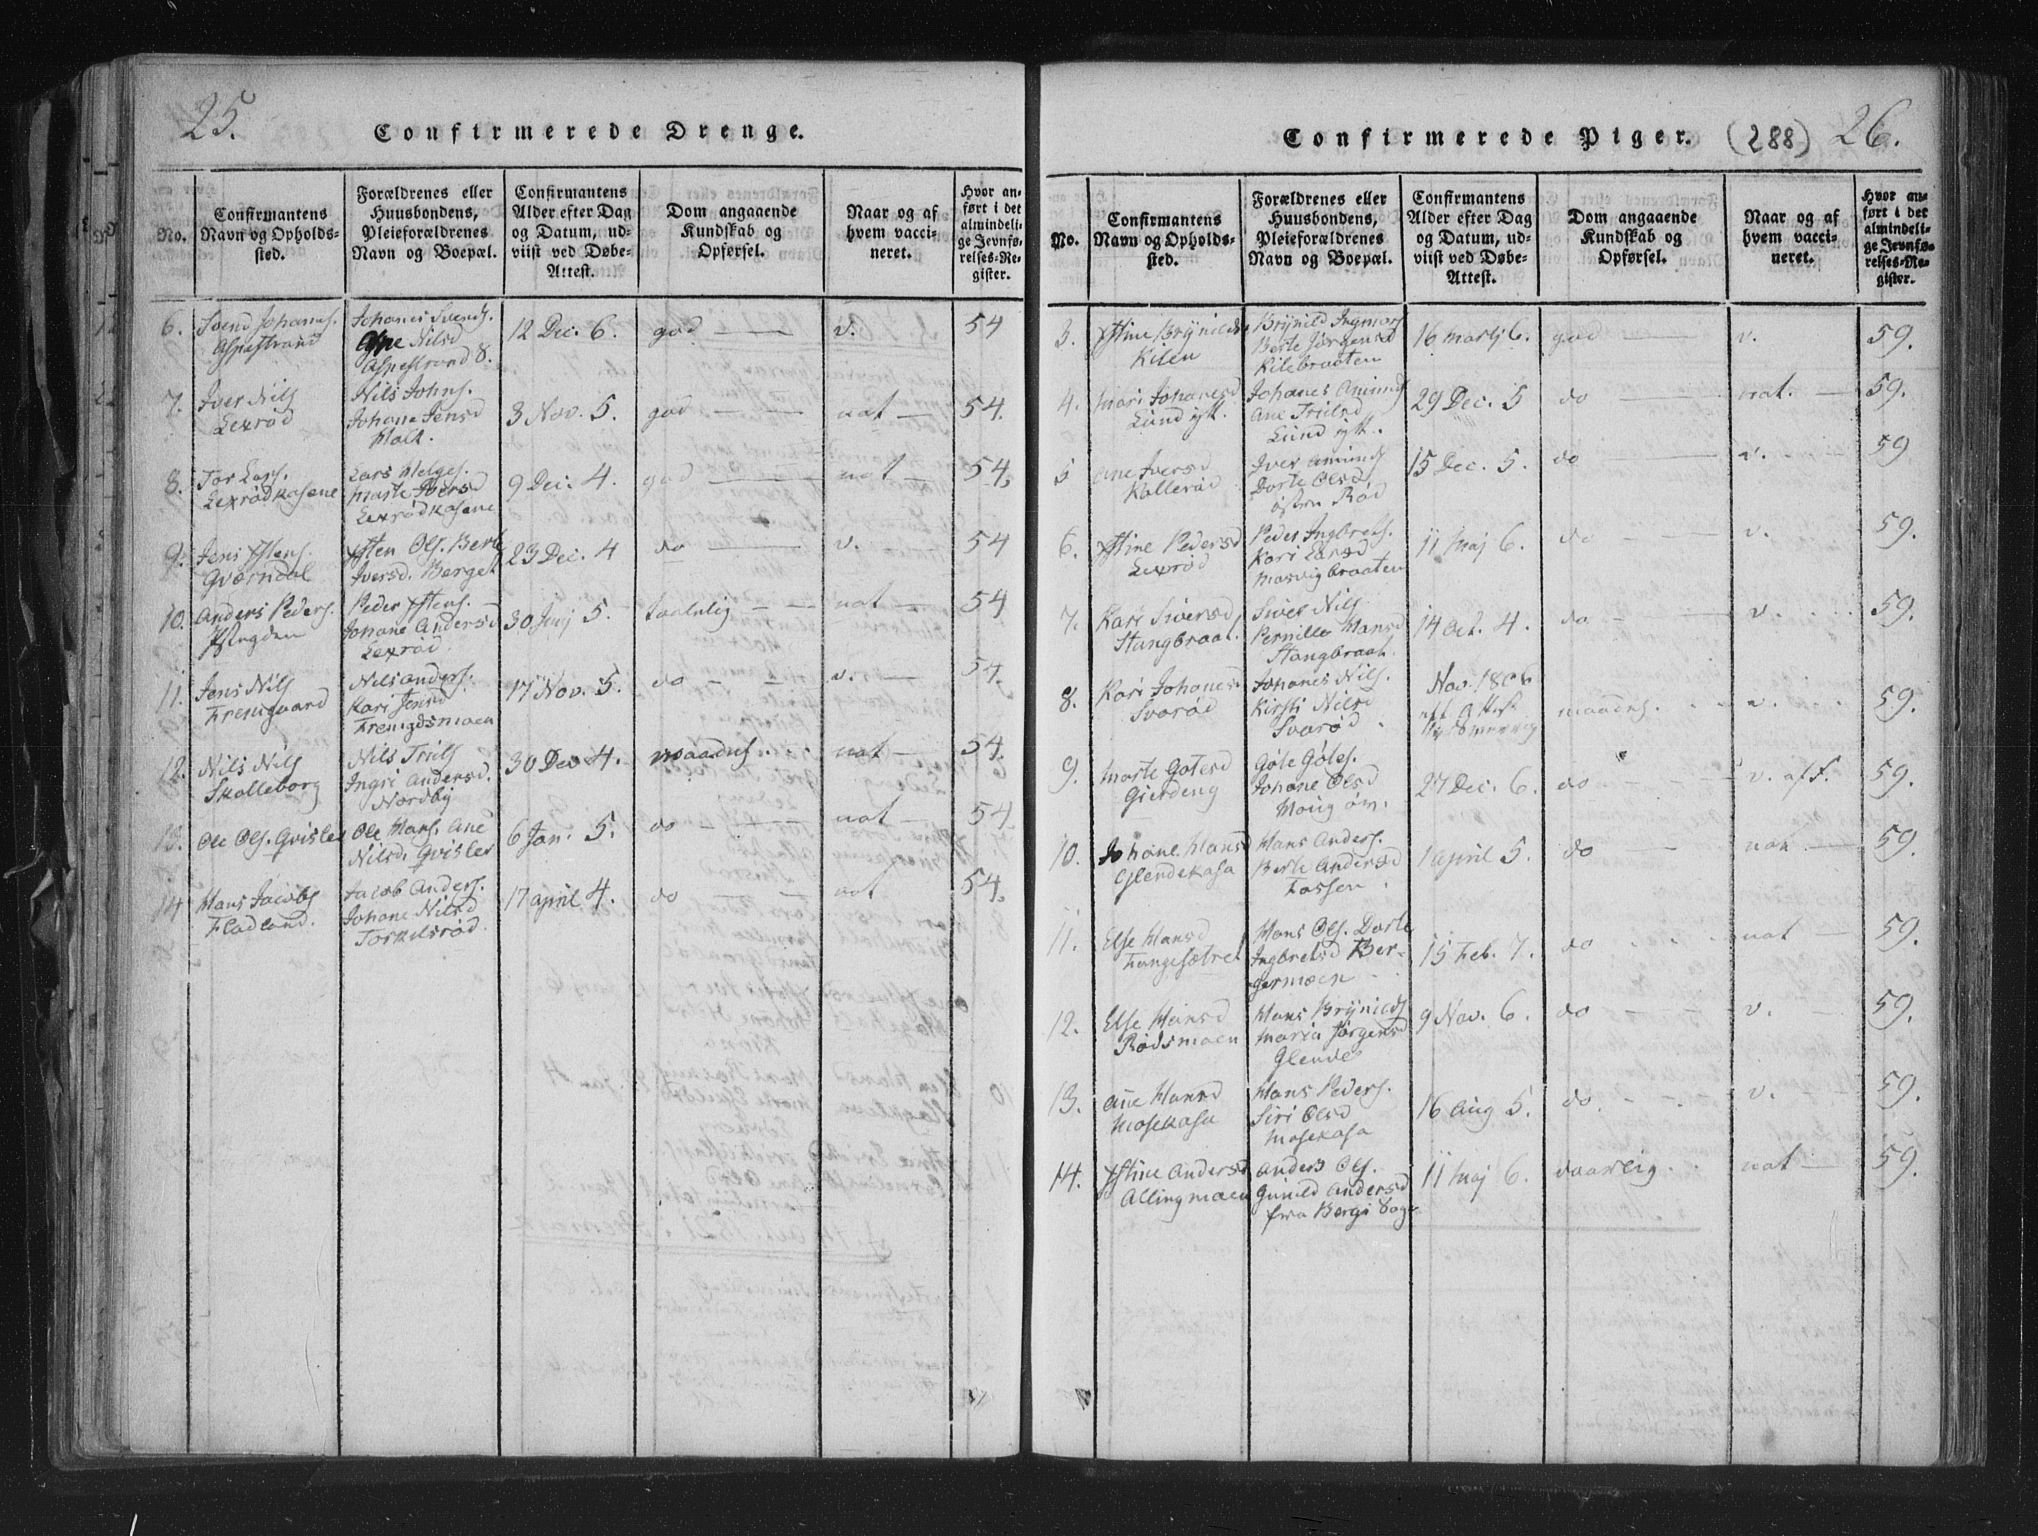 25.
Confirmerede Drenge.
No.
Confirmantens
Navn og Opholds-
sted.
Forældrenes eller
Huusbondens,
Pleieforældrenes
Navn og Boepæl.
Confirmantens
Alder efter Dag
og Datum, ud-
viist ved Døbe-
Attest.
Dom angaaende
Kundskab og
Opførsel.
Naar og af
hvem vacci-
neret.
Hvor an-
ført i det
almindeli-
ge Jevnfø-
relses-Re-
gister.
6.
Svend Johans.
Aspestrand
Johanes Svends.
Ane Nilsd
Aspestrand 8.
12 Dec. 6.
god
v.
54
7.
Iver Nils
Lexrød
Nils Johns.
Johane Jensd
Holt.
3 Nov. 5.
god
nat
54.
8.
Tor Lars.
Lexrødkasene
Lars Helges.
Marte Iversd
Lexrødkasene
9 Dec. 4.
god
nat
54.
9.
Jens Østens.
Qværndal
Østen Ols. Berte
Iversd. Berget
23 Dec. 4
do
v.
54
10.
Anders Peders.
Peder Østens.
Johane Andersd
Lexrød.
30 Juj 5.
taalelig
nat
54
11.
Jens Nils
Nils Anders.
Kari Jensd
17 Nov. 5.
do
v.
54.
12.
Nils Nils
Skolleborg
Nils Truls
Ingri Andersd.
Nordby
30 Dec 4.
maadel.
nat
54.
13.
Ole Ols. Qvisler
Ole Hans. Ane
Nilsd. Qvisler
6 Jan. 5.
do
nat
54.
14
Hans Jacobs
Fladland.
Jacob Anders.
Johane Nilsd
Torkilsrød.
17 april 4.
do
nat
54.
Confirmerede Piger. (288) 26.
No.
Confirmantens
Navn og Opholds-
sted.
Forældrenes eller
Huusbondens,
Pleieforældrenes
Navn og Boepæl.
Confirmantens
Alder efter Dag
og Datum, ud-
viist ved Døbe-
Attest.
Dom angaaende
Kundskab og
Opførsel.
Naar og af
hvem vacci-
neret.
Hvor an-
ført i det
almindeli-
ge Jevnfø-
relses-Re-
gister.
3.
Østine Brynilds
Kilen
Brynild Ingmars
Berte Jørgensd
Kilebraaten
16 martj 6.
god
v.
59.
4.
Mari Johanesd
Lund ytt.
Johanes Amunds
Ane Trulsd
Lund ytt.
29 Dec. 5
do
nat.
59.
5
Ane Iversd
Kollerød
Iver Amunds
Dorte Olsd
østen Rød
15 Dec. 5.
do
v.
59
6.
Østine Pedersd
Lexrød
Peder Ingbrens.
Kari Larsd
Mosvigbraaten
11 Maj 6.
do
v.
59.
7.
Kari Siversd
Stangbraat.
Siver Nils
Pernille Hansd
Stangbraat.
14 Oct. 4.
do
v.
59.
8.
Kari Johanes
Svarød
Johanes Nils.
Kirsti Nilsd
Svarød.
Nov. 1806
maadel.
v.
59.
9.
Marte Gotesd
Gierdeng
Gøte Gøtes.
Johane Olsd
27 Dec. 6.
do
v. af F.
59.
10.
Johane Hansd
Glendekasa
Hans Anders.
Berte Andersd
Fossen.
1 april 5.
do
nat
59.
11.
Else Hansd
Fangesætret
Hans Ols. Dorte
Ingbretsd Ber-
germoen
15 Feb. 7.
do
nat
59.
12.
Else Hansd
Rødsmoen
Hans Brynilds
Maria Jørgensd
Glende
9 Nov. 6.
do
v.
59.
13.
Ane Hansd
Mosekasa
Hans Peders.
Siri Olsd
Mosekasa
16 Aug 5.
do.
v.
59.
14.
Østine Andersd
Allingmoen
Anders Ols.
Gunild Andersd
fra Bergs Sogn
11 Maj 6.
daarlig
nat
59.